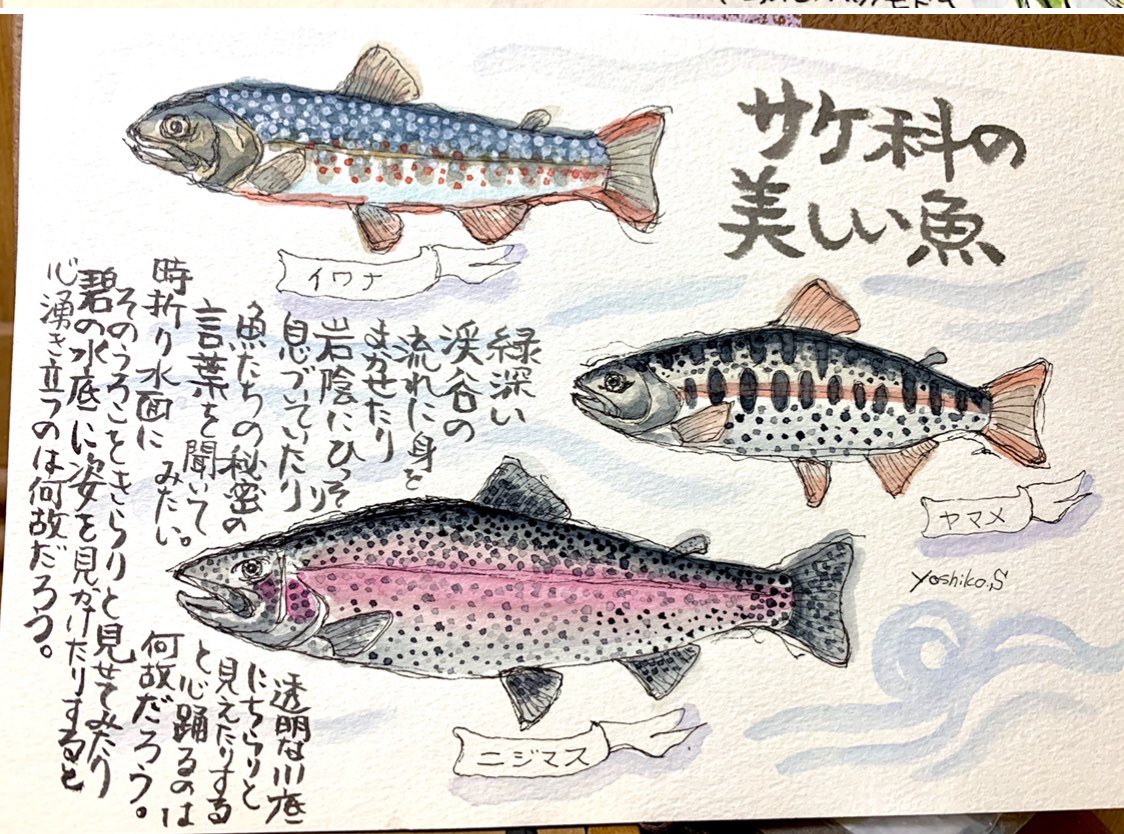 サケ科の
美しい魚
イワナ
ヤマメ
Yoshiko.S
緑深い
渓谷の
流れに身を
まかせたり
岩陰にひっそり
息づいていたり
魚たちの秘密の
言葉を聞いて
みたい。
時折り水面に
そのうろこをきらりと見せてみたり
碧の水底に姿を見かけたりすると
心湧き立つのは何故だろう。
透明な川底
にちらりと
見えたりする
と心踊るのは
何故だろう。
ニジマス